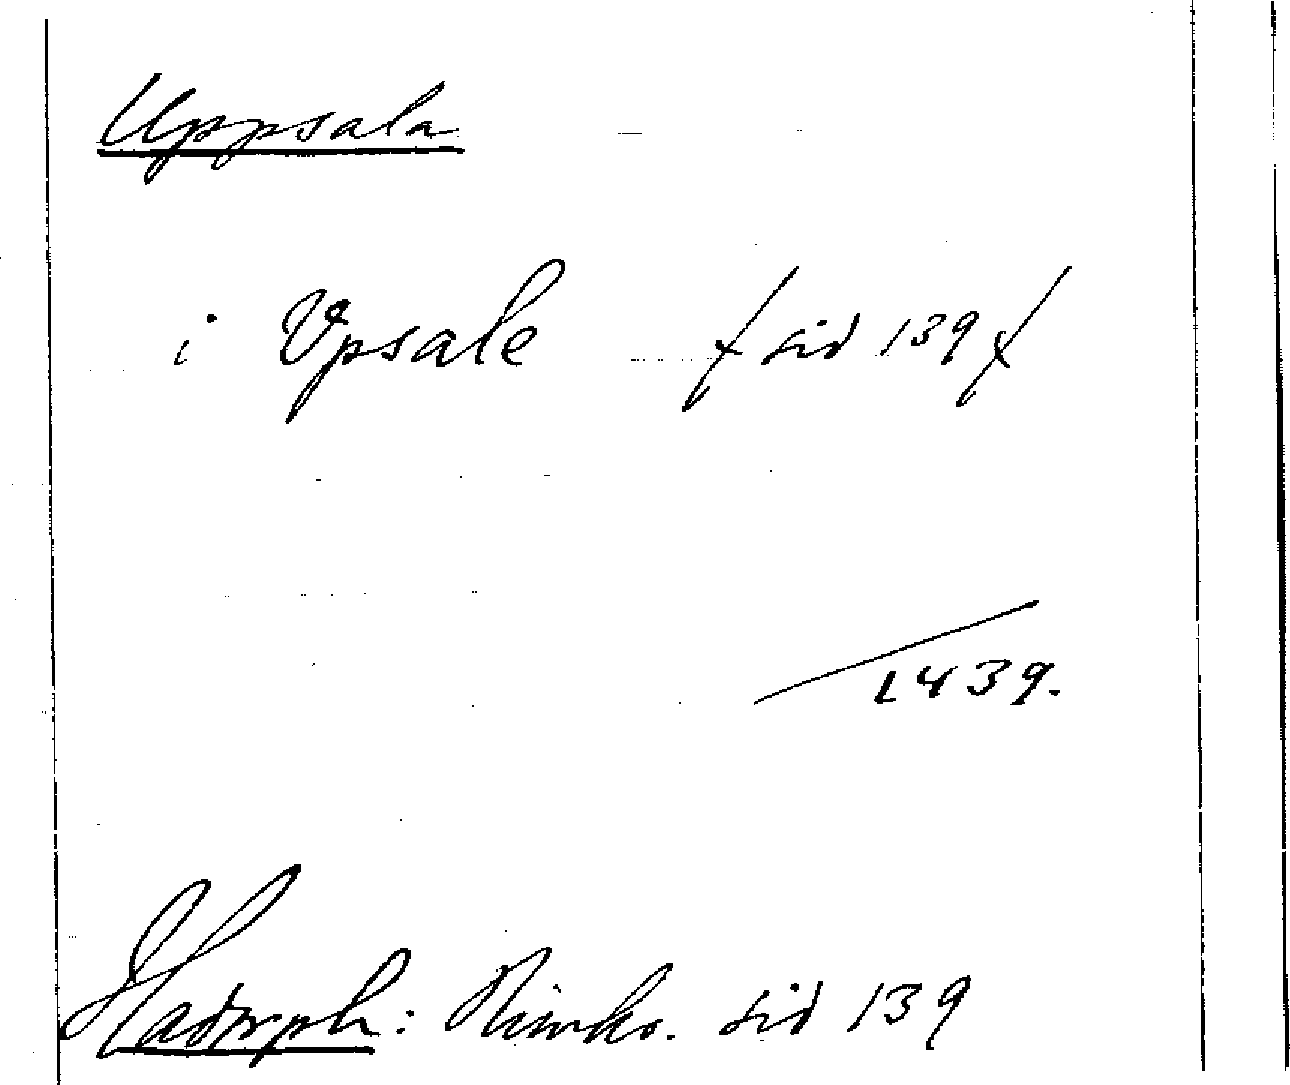 Uppsala
i Vpsale /: sid 139 :/
1439.
Hadorph: Rimkr. sid 139